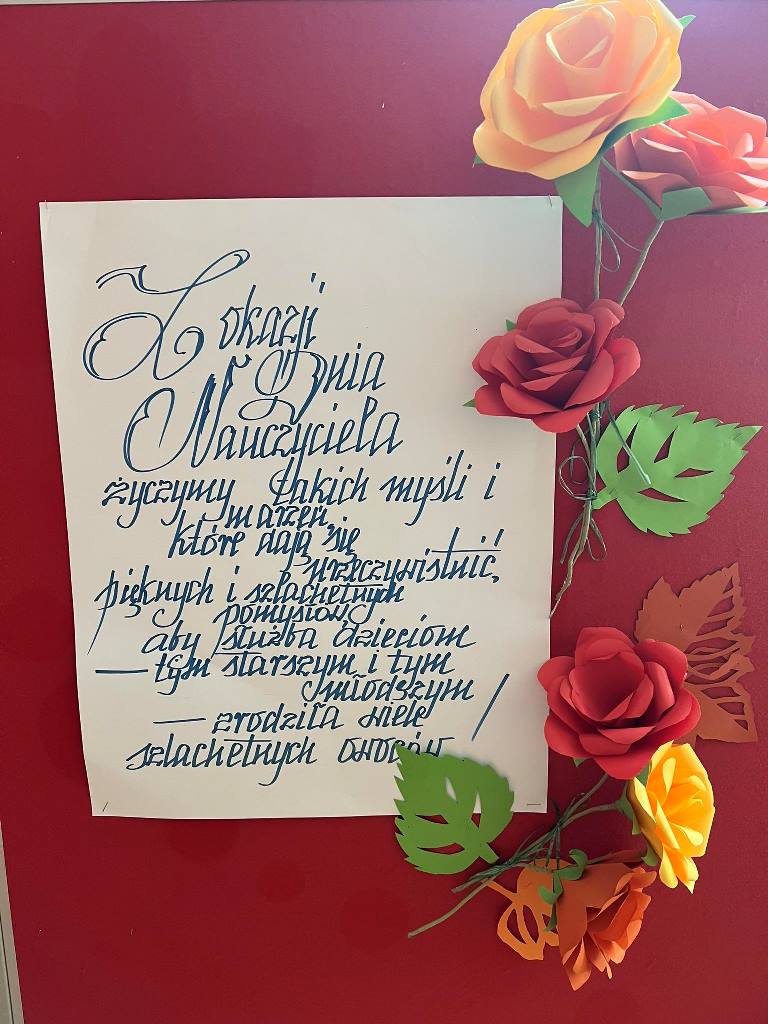 Z okazji
Dnia
Nauczyciela
życzymy takich myśli i
marzeń,
które dają się
urzeczywistnić,
pięknych i szlachetnych
pomysłów,
aby służba dzieciom
— tym starszym i tym
młodszym
— zrodziła wiele
szlachetnych owoców